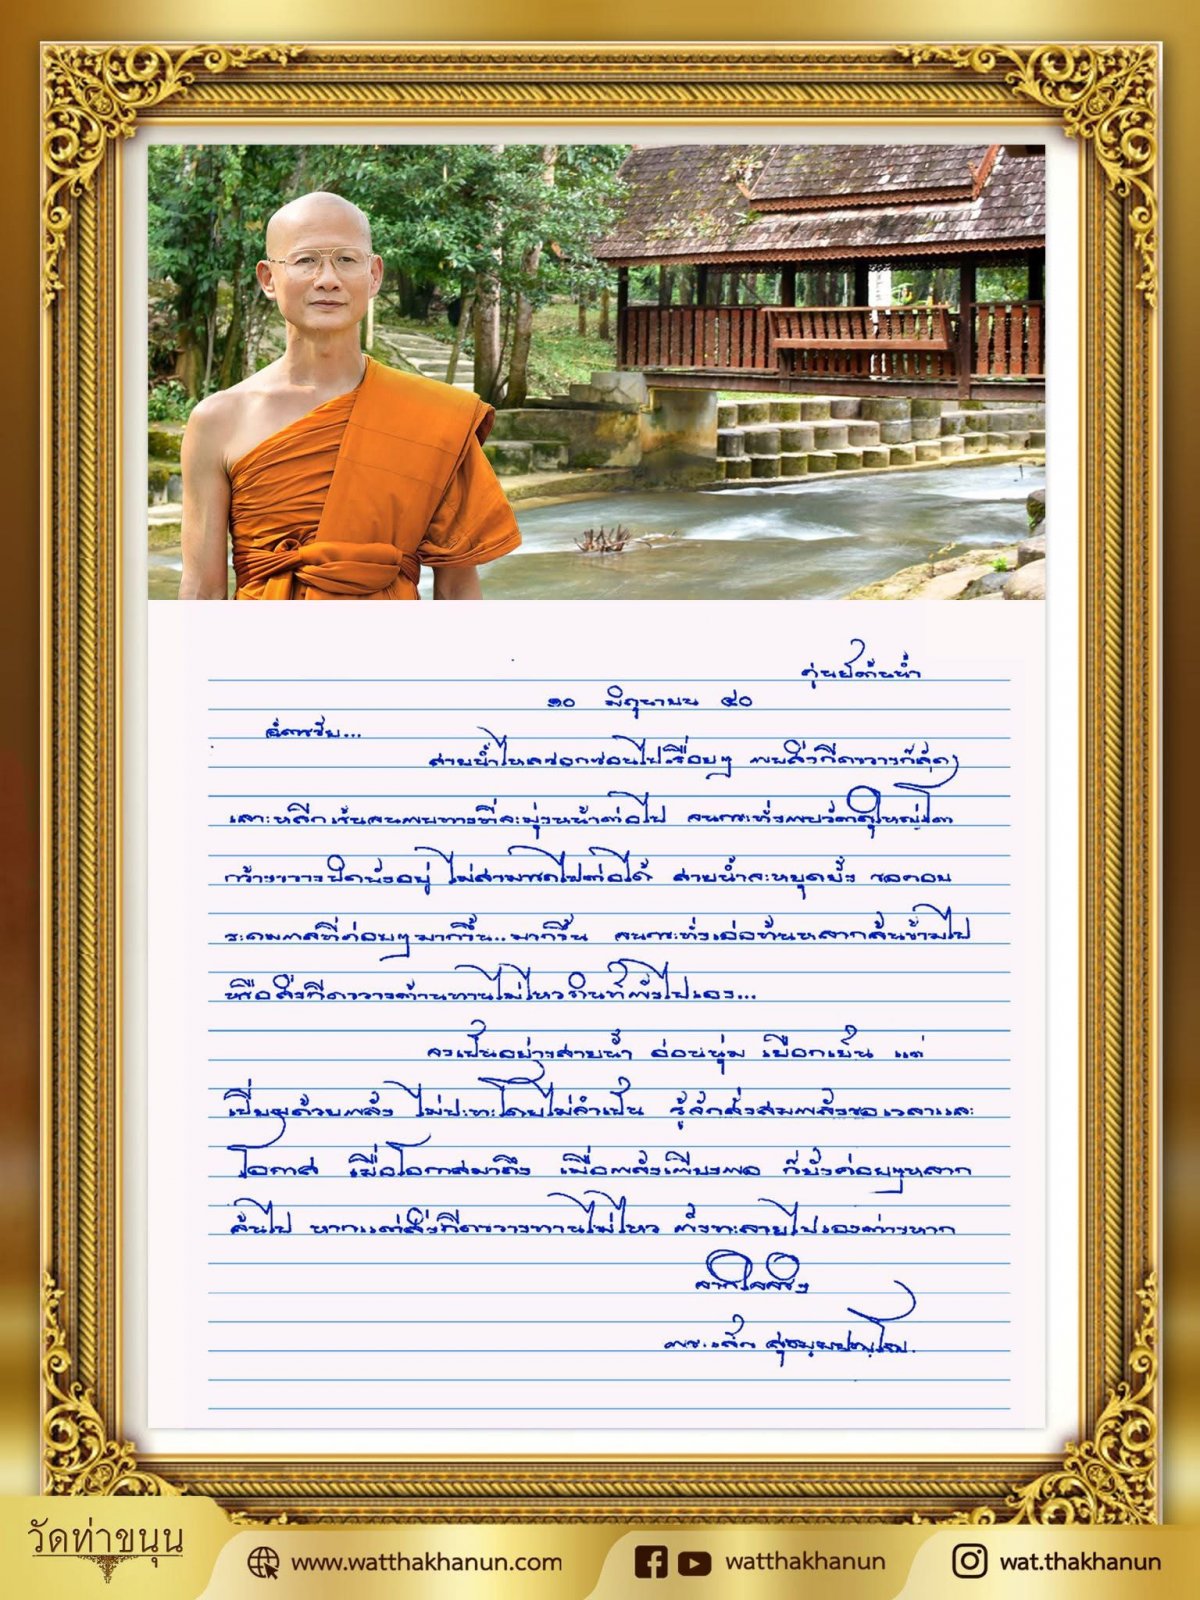 ศูนย์ต้นน้ำ
๑๐ มิถุนายน ๔๐
สายน้ำไหลซอกซอนไปเรื่อยๆ พบสิ่งกีดขวางก็ลัด
เลาะหลีกเร้นจนพบทางที่จะมุ่งหน้าต่อไป จนกระทั่งพบวัตถุใหญ่โต
กว้างขวางปิดบังอยู่ ไม่สามารถไปต่อได้ สายน้ำจะหยุดยั้ง รอคอย
ระดมพลที่ค่อยๆมากขึ้น..มากขึ้น จนกระทั่งเอ่อท้นหลากล้นข้ามไป
หรือสิ่งกีดขวางต้านทานไม่ไหวภินท์พังไปเอง...
จงเป็นอย่างสายน้ำ อ่อนนุ่ม เยือกเย็น แต่
เปี่ยมด้วยพลัง ไม่ปะทะโดยไม่จำเป็น รู้จักสั่งสมพลังรอเวลาและ
โอกาส เมื่อโอกาสมาถึง เมื่อพลังเพียงพอ ก็ยังค่อยๆหลาก
ล้นไป หากแต่สิ่งกีดขวางทานไม่ไหว พังทะลายไปเองต่างหาก
จากใจจริง
พระเล็ก สุธมฺมปญฺโญ.
วัดท่าขนุน
www.watthakhanun.com
watthakhanun
wat.thakhanun